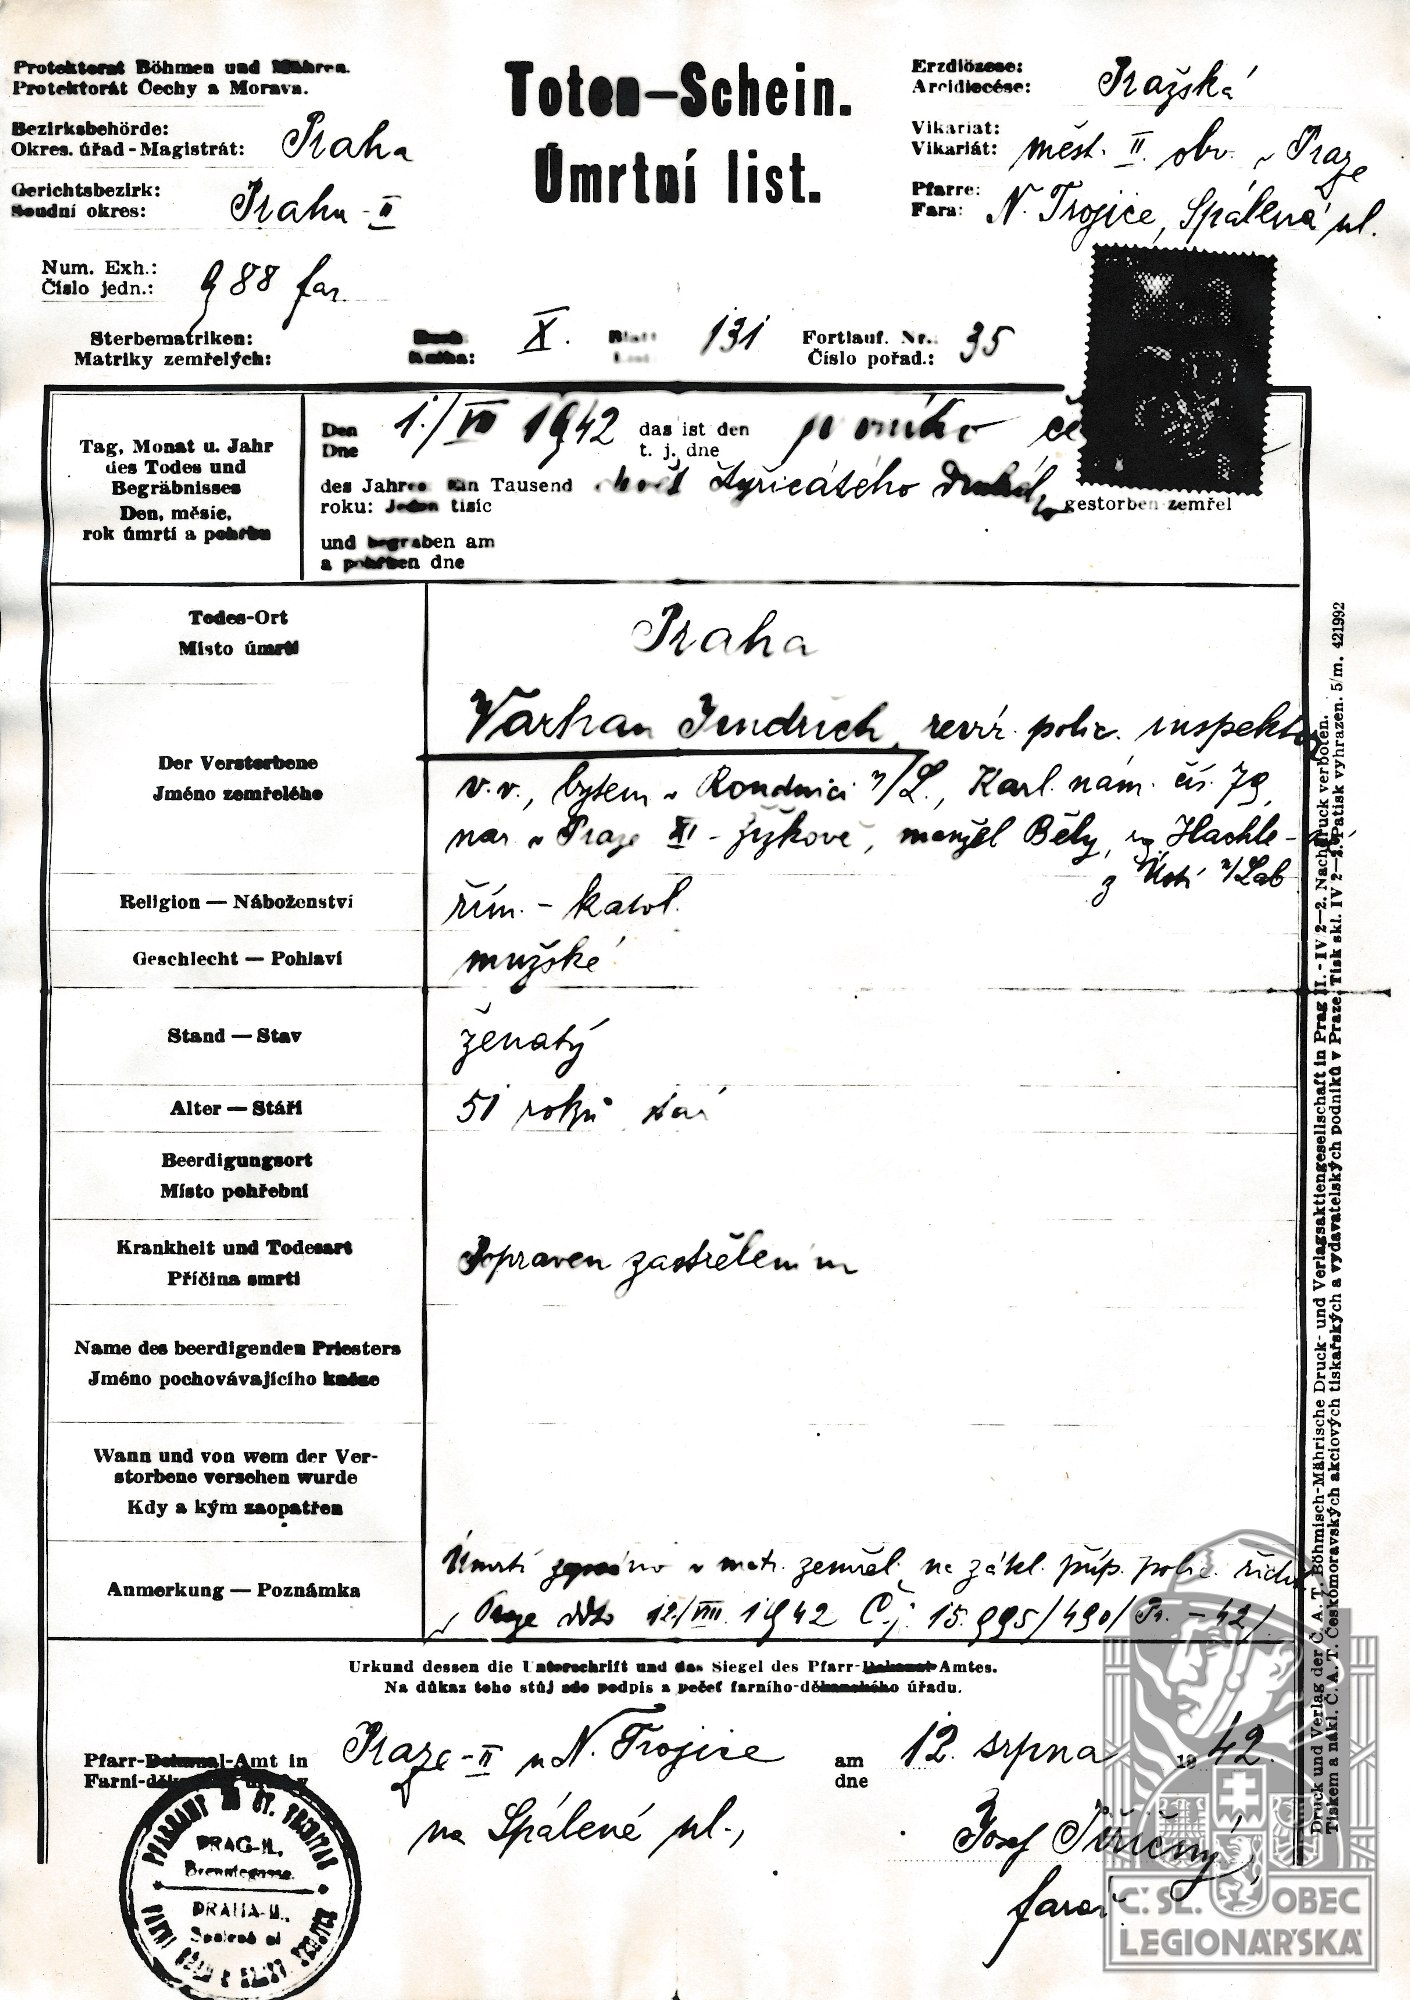 Protektorat Böhmen und Mähren.
Protektorát Čechy a Morava.
Bezirksbehörde:
Okres. úřad - Magistrát: Praha
Gerichtsbezirk:
Soudní okres: Praha - II
Num. Exh.:
Číslo jedn.: 988 far.
Toten-Schein.
Úmrtní list.
Erzdiözese:
Arcidiecése: Pražská
Vikariat:
Vikariát: měst. II. obv. v Praze
Pfarre:
Fara: N. Trojice, Spálená ul.
Sterbematriken: Buch Blatt Fortlauf. Nr.
Matriky zemřelých: Kniha: X. List 131 Číslo pořad.: 35
Tag, Monat u. Jahr
des Todes und
Begräbnisses
Den, měsíc,
rok úmrtí a pohřbu
Den 1./VII 1942 das ist den prvního
Dne t. j. dne
des Jahres Ein Tausend čtyřicátého druhého
roku: Jeden tisíc gestorben-zemřel
und begraben am
a pohřben dne
Todes-Ort
Místo úmrtí
Praha
Der Verstorbene
Jméno zemřelého
Varhan Jindřich, revír. polic. inspektor
v.v., bytem v Roudnici n/L., Karl. nám. čís. 79,
nar. v Praze XI - Žižkově, manžel Běly,
z Ústí n/Lab
Religion — Náboženství
řím. - katol.
Geschlecht — Pohlaví
mužské
Stand — Stav
ženatý
Alter — Stáří
51 roků stár
Beerdigungsort
Místo pohřební
Krankheit und Todesart
Příčina smrti
Popraven zastřelením
Name des beerdigenden Priesters
Jméno pochovávajícího kněze
Wann und von wem der Ver-
storbene versehen wurde
Kdy a kým zaopatřen
Anmerkung — Poznámka
Úmrtí zapsáno v matr. zeměl. na zákl. příp. polic. ředit.
v Praze ddto 12./VIII. 1942 Č.j. 15.995/490/Pr. - 42/.
Urkund dessen die Unterschrift und das Siegel des Pfarr-Dekanat-Amtes.
Na důkaz toho stůj zde podpis a pečeť farního-děkanského úřadu.
Pfarr-Dekanal-Amt in
Farní-děkanský úřad v
Praze - II u N. Trojice
na Spálené ul.,
am
dne
12. srpna 1942.
Josef Jiřičný,
farář.
PFARRAMT ZU ST. TRINITAS
PRAG-II.,
Brenntegasse.
PRAHA-II.,
Spálená ul
FARNÍ ÚŘAD U NEJSV. TROJICE
Druck und Verlag der Č. A. T. Böhmisch-Mährische Druck- und Verlagsaktiengesellschaft in Prag II. - IV 2—2. Nachdruck verboten.
Tiskem a nákl. Č. A. T. Českomoravských akciových tiskařských a vydavatelských podniků v Praze. Tisk skl. IV 2—2. Patisk vyhrazen. 5/m. 421992
Č.SL. OBEC
LEGIONÁŘSKÁ